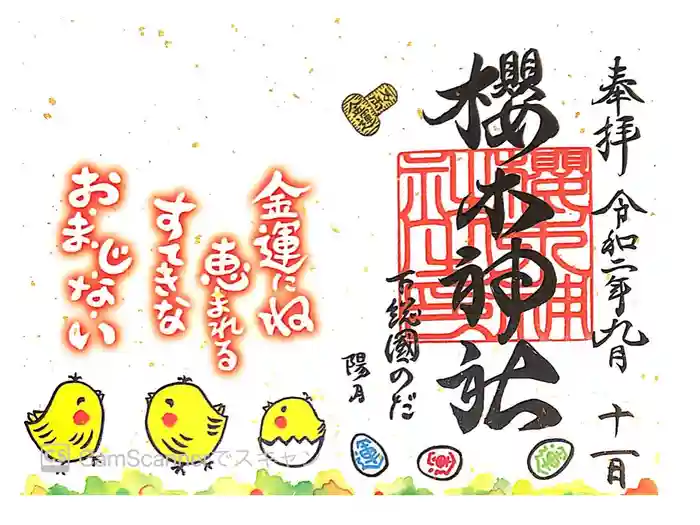 奉拝 令和二年九月 十一日
櫻木神社
下総國のだ
陽月
金運にね
恵まれる
すてきな
おまじない
CS CamScannerでスキャン